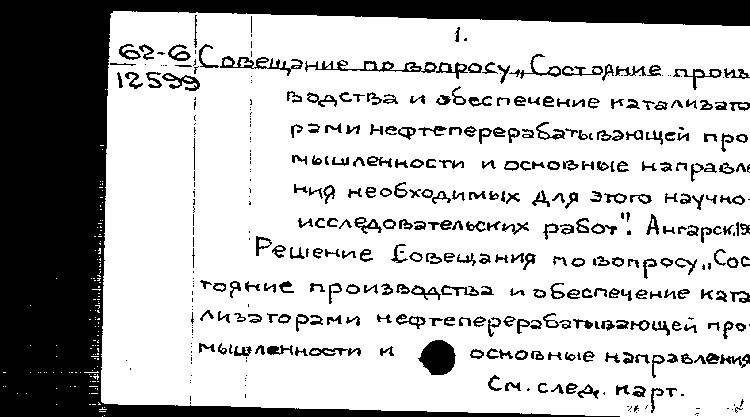 1.
62-6 Совещание по вопросу „Состояние произ
12599
водства и обеспечение катализато
рами нефтеперерабатывающей про
мышленности и основные направле
ния необходимых для этого научно-
исследовательских работ". Ангарск,
Решение Совещания по вопросу „Сос
тояние производства и обеспечение ката
лизаторами нефтеперерабатывающей про
мышленности и основные направления
См. след. карт.